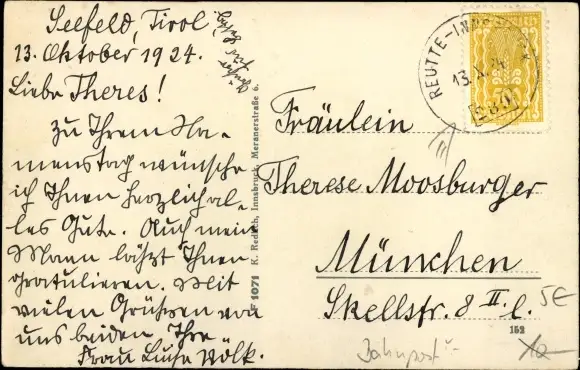 Seefeld, Tirol,
13. Oktober 1924.
Liebe Theres!
Zu Ihrem Na-
menstag wünsche
ich Ihnen herzlich al-
les Gute. Auch mein
Mann läßt Ihnen
gratulieren. Mit
vielen Grüßen von
uns beiden Ihre
Frau Luise Wölk.
1071 K. Redlich, Innsbruck, Meranerstraße 6.
REUTTE-INNS
13.X.24
Fräulein
Therese Moosburger
München
Skellstr. 8 II. l.
5€
152
Bahnpost